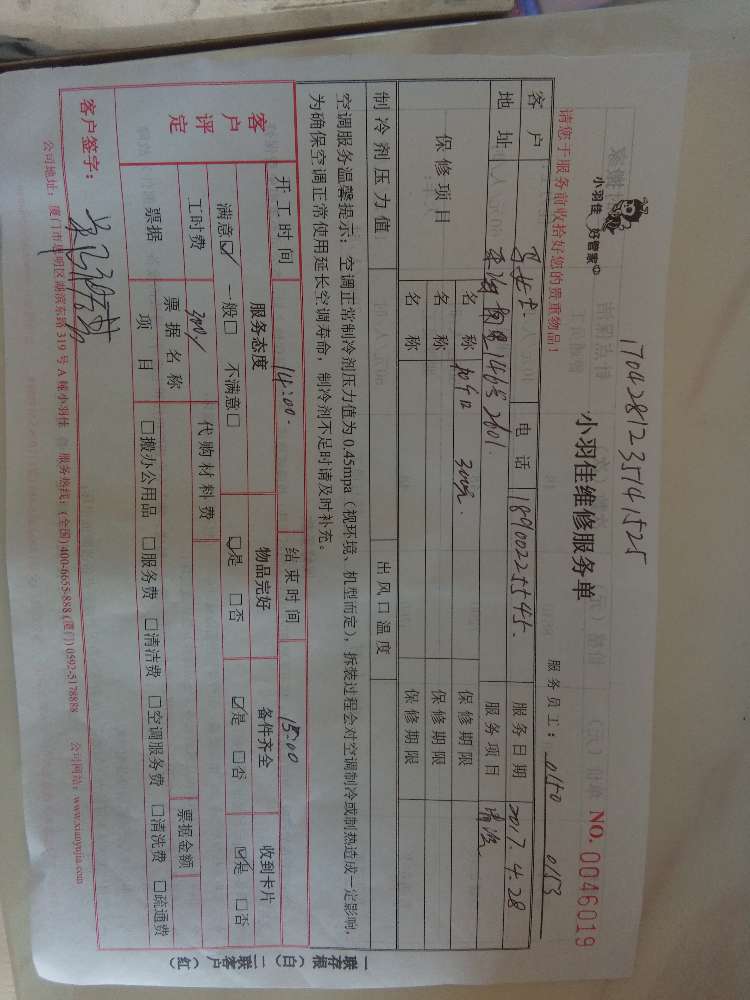 17042812 35141525
小羽佳 好管家
小羽佳维修服务单
请您于服务前收拾好您的贵重物品！
服务员工： 0150 0153
NO. 0046019
客户 电话 18900225545. 服务日期 2017.4.28
地址 146号2601. 服务项目 清洗
保修项目 名称 300元. 保修期限
名称 保修期限
名称 保修期限
制冷剂压力值 出风口温度
空调服务温馨提示：空调正常制冷剂压力值为 0.45mpa（视环境、机型而定），拆装过程会对空调制冷或制热造成一定影响，
为确保空调正常使用延长空调寿命，制冷剂不足时请及时补充。
客户评定 开工时间 14:00. 结束时间 15:00
服务态度 物品完好 备件齐全 收到卡片
满意☑ 一般□ 不满意□ ☑是 □否 ☑是 □否 ☑是 □否
工时费 300 代购材料费
票据 票据名称 票据金额
项目 □搬办公用品 □服务费 □清洁费 □空调服务费 □清洗费 □疏通费
客户签字：
公司地址：厦门市思明区湖滨东路 319 号 A 幢小羽佳 服务热线：(全国) 400-6655-888 (厦门) 0592-5178888 公司网站：www.xiaoyujia.com
一联存根（白） 二联客户（红）